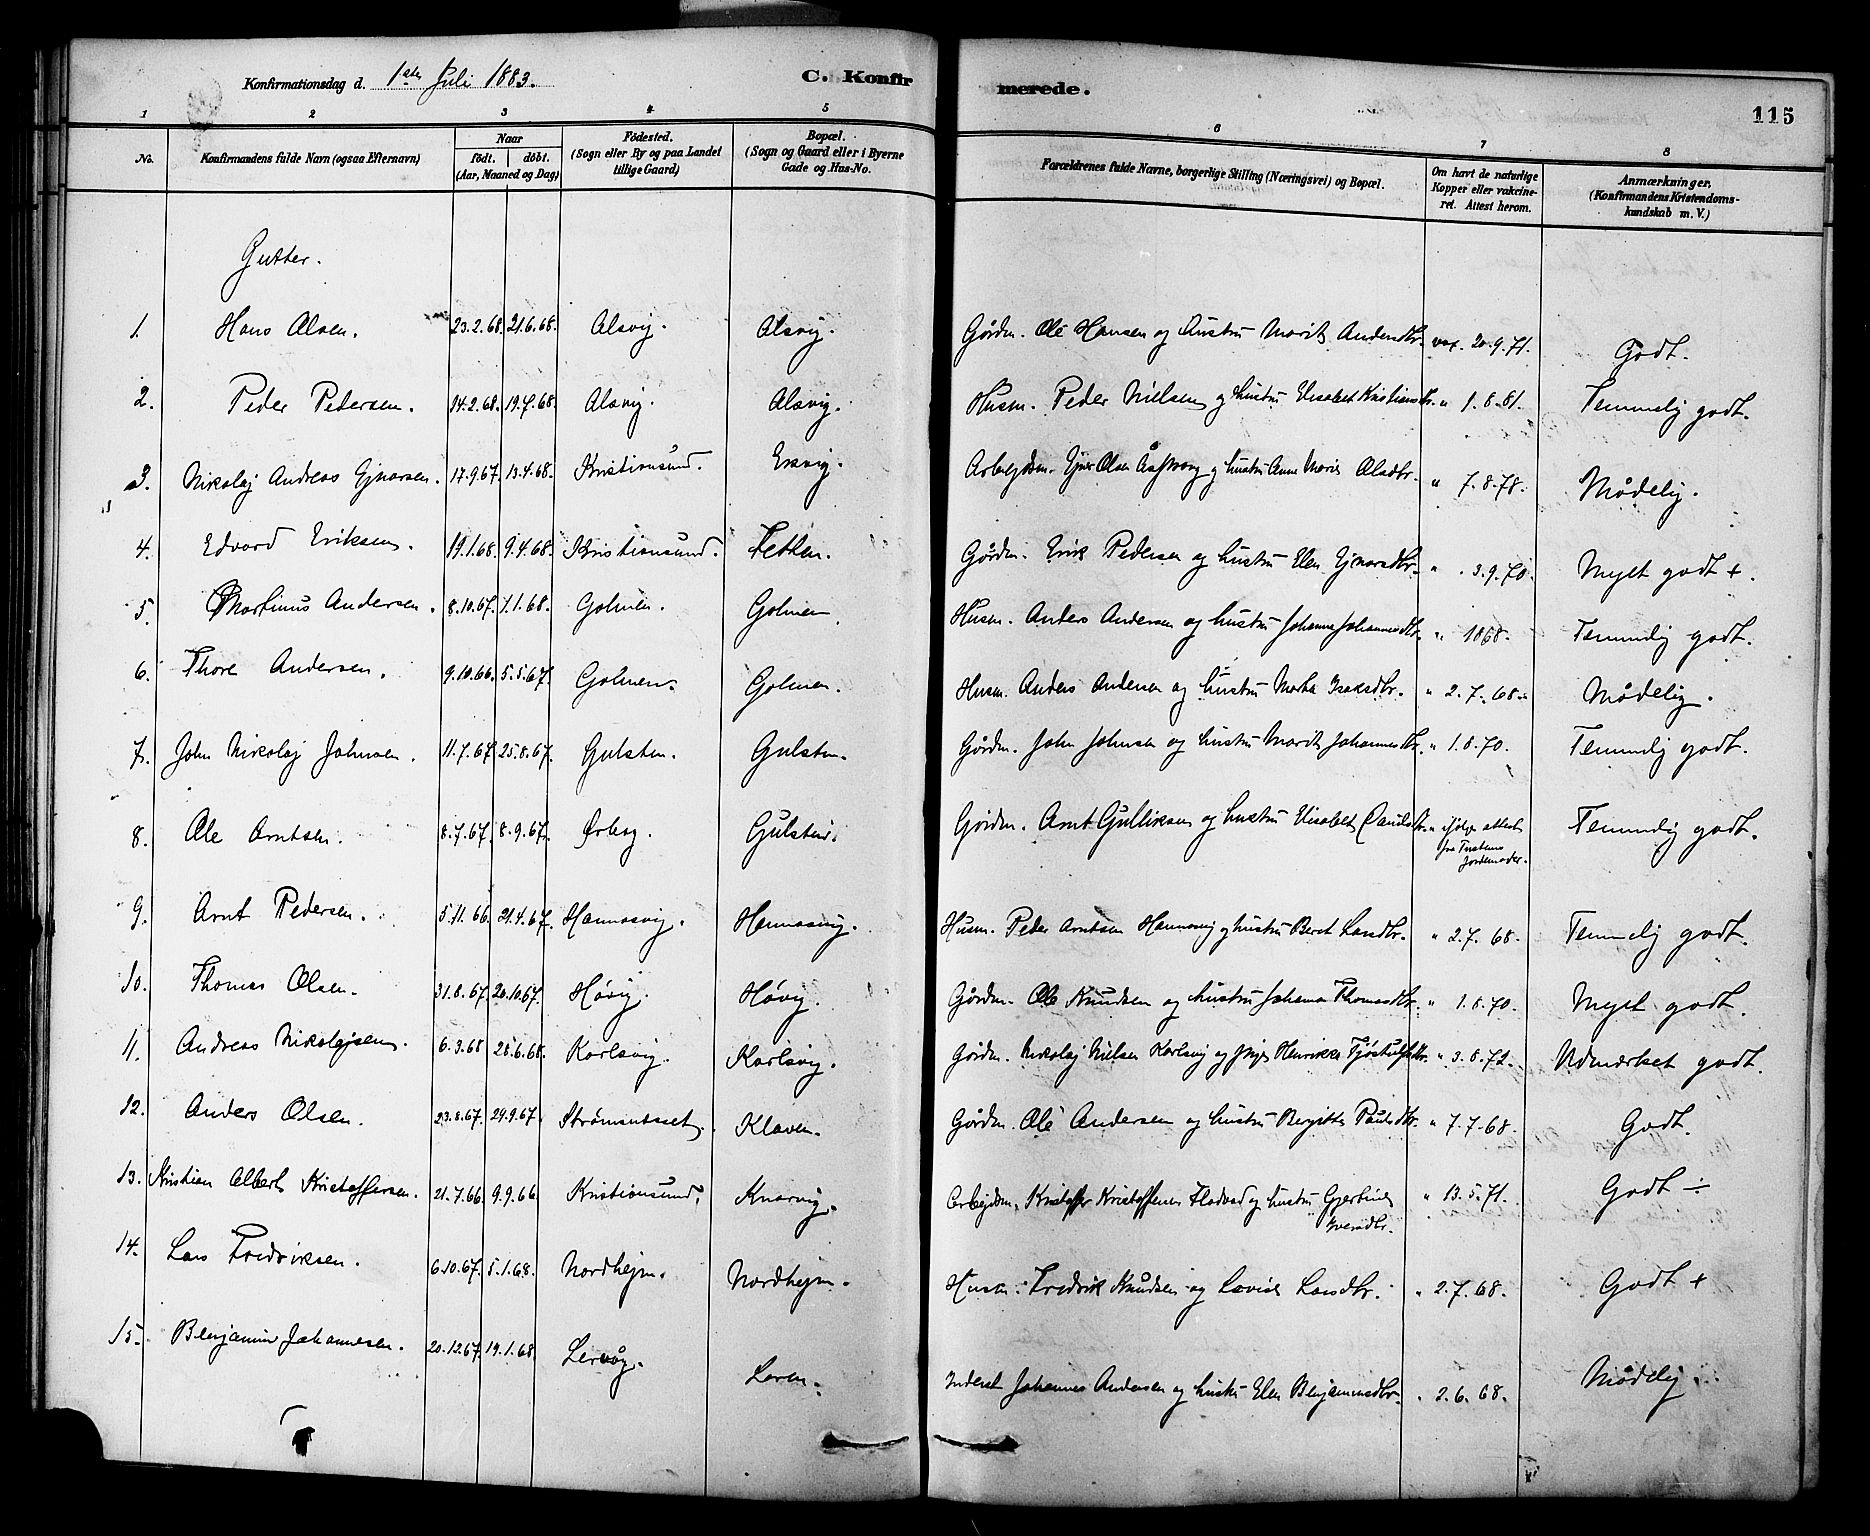 Konfirmationsdag d. 1ste Juli 1883.
C. Konfirmerede.
115
1 2 3 4 5 6 7 8
No.
Konfirmandens fulde Navn (ogsaa Efternavn)
Naar
födt. döbt.
(Aar, Maaned og Dag)
Födested.
(Sogn eller By og paa Landet
tillige Gaard)
Bopæl.
(Sogn og Gaard eller i Byerne
Gade og Hus-No.
Forældrenes fulde Navne, borgerlige Stilling (Næringsvei) og Bopæl.
Om havt de naturlige
Kopper eller vakcine-
ret. Attest herom.
Anmærkninger.
(Konfirmandens Kristendoms-
kundskab m. V.)
Gutter.
1. Hans Olsen. 23.2.68. 21.6.68. Alsvig. Alsvig. Gårdm. Ole Hansen og hustru Marit Andersdtr. vax. 20.9.71. Godt.
2. Peder Pedersen. 14.2.68. 19.7.68. Alsvig. Alsvig. Husm. Peder Nielsen og hustru Elisabet Kristiansdtr. " 1.8.81. Temmelig godt.
3. Nikolaj Andreas Ejnarsen. 17.9.67. 13.4.68. Kristiansund. Ersvig. Arbejdsm. Ejner Olsen og hustru Anne Marie Olsdtr. " 7.8.78. Mådelig.
4. Edvard Eriksen. 19.1.68. 9.4.68. Kristiansund. Gårdm. Erik Pedersen og hustru Elen Ejnarsdtr. " 3.9.70. Meget godt +.
5. Martinus Andersen. 8.10.67. 1.1.68. Golmen. Golmen. Husm. Anders Andersen og hustru Johanna Johannesdtr. " 1868. Temmelig godt.
6. Thore Andersen. 9.10.66. 5.5.67. Golmen. Golmen. Husm. Anders Andersen og hustru Marta Isaksdtr. " 2.7.68. Mådelig.
7. John Nikolaj Johnsen. 11.7.67. 25.8.67. Gulsten. Gulsten. Gårdm. John Johnsen og hustru Marit Johannesdtr. " 1.8.70. Temmelig godt.
8. Ole Arntsen. 8.7.67. 8.9.67. Gulsten. Gårdm. Arnt Gulliksen og hustru Elisabet " ifølge attest
fra Tustens
Jordemoder.
Temmelig godt.
9. Arnt Pedersen. 5.11.66. 21.4.67. Hannasvig. Hannasvig. Husm. Peder Arntsen Hannasvig og hustru Beret Larsdtr. " 2.7.68. Temmelig godt.
10. Thomas Olsen. 31.8.67. 20.10.67. Høvig. Høvig. Gårdm. Ole Knudsen og hustru Johanna Thomasdtr. " 1.8.70. Meget godt.
11. Andreas Nikolajsen. 6.3.68. 28.6.68. Karlsvig. Karlsvig. Gårdm. Nikolaj Nielsen Karlsvig og pige Henrikke " 3.8.72. Udmærket godt.
12. Anders Olsen. 23.8.67. 29.9.67. Klaven. Gårdm. Ole Andersen og hustru Bergitte Paulsdtr. " 7.7.68. Godt.
13. Kristian Albert Kristoffersen. 21.7.66. 9.9.66. Kristiansund. Knarvig. Arbejdsm. Kristoffer Kristoffersen Flatvad og hustru Gjertine
Iversdtr.
" 13.5.71. Godt ÷
14. Lars Fredriksen. 6.10.67. 5.1.68. Nordhejm. Nordhejm. Husm. Fredrik Knudsen og Lovise Larsdtr. " 2.7.68. Godt +
15. Benjamin Johannesen. 20.12.67. 19.1.68. Lervåg. Inderst Johannes Andersen og hustru Elen Benjaminsdtr. " 2.6.68. Mådelig.